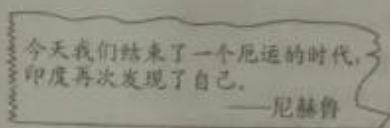 今天我们结束了一个厄运的时代，
印度再次发现了自己。
——尼赫鲁